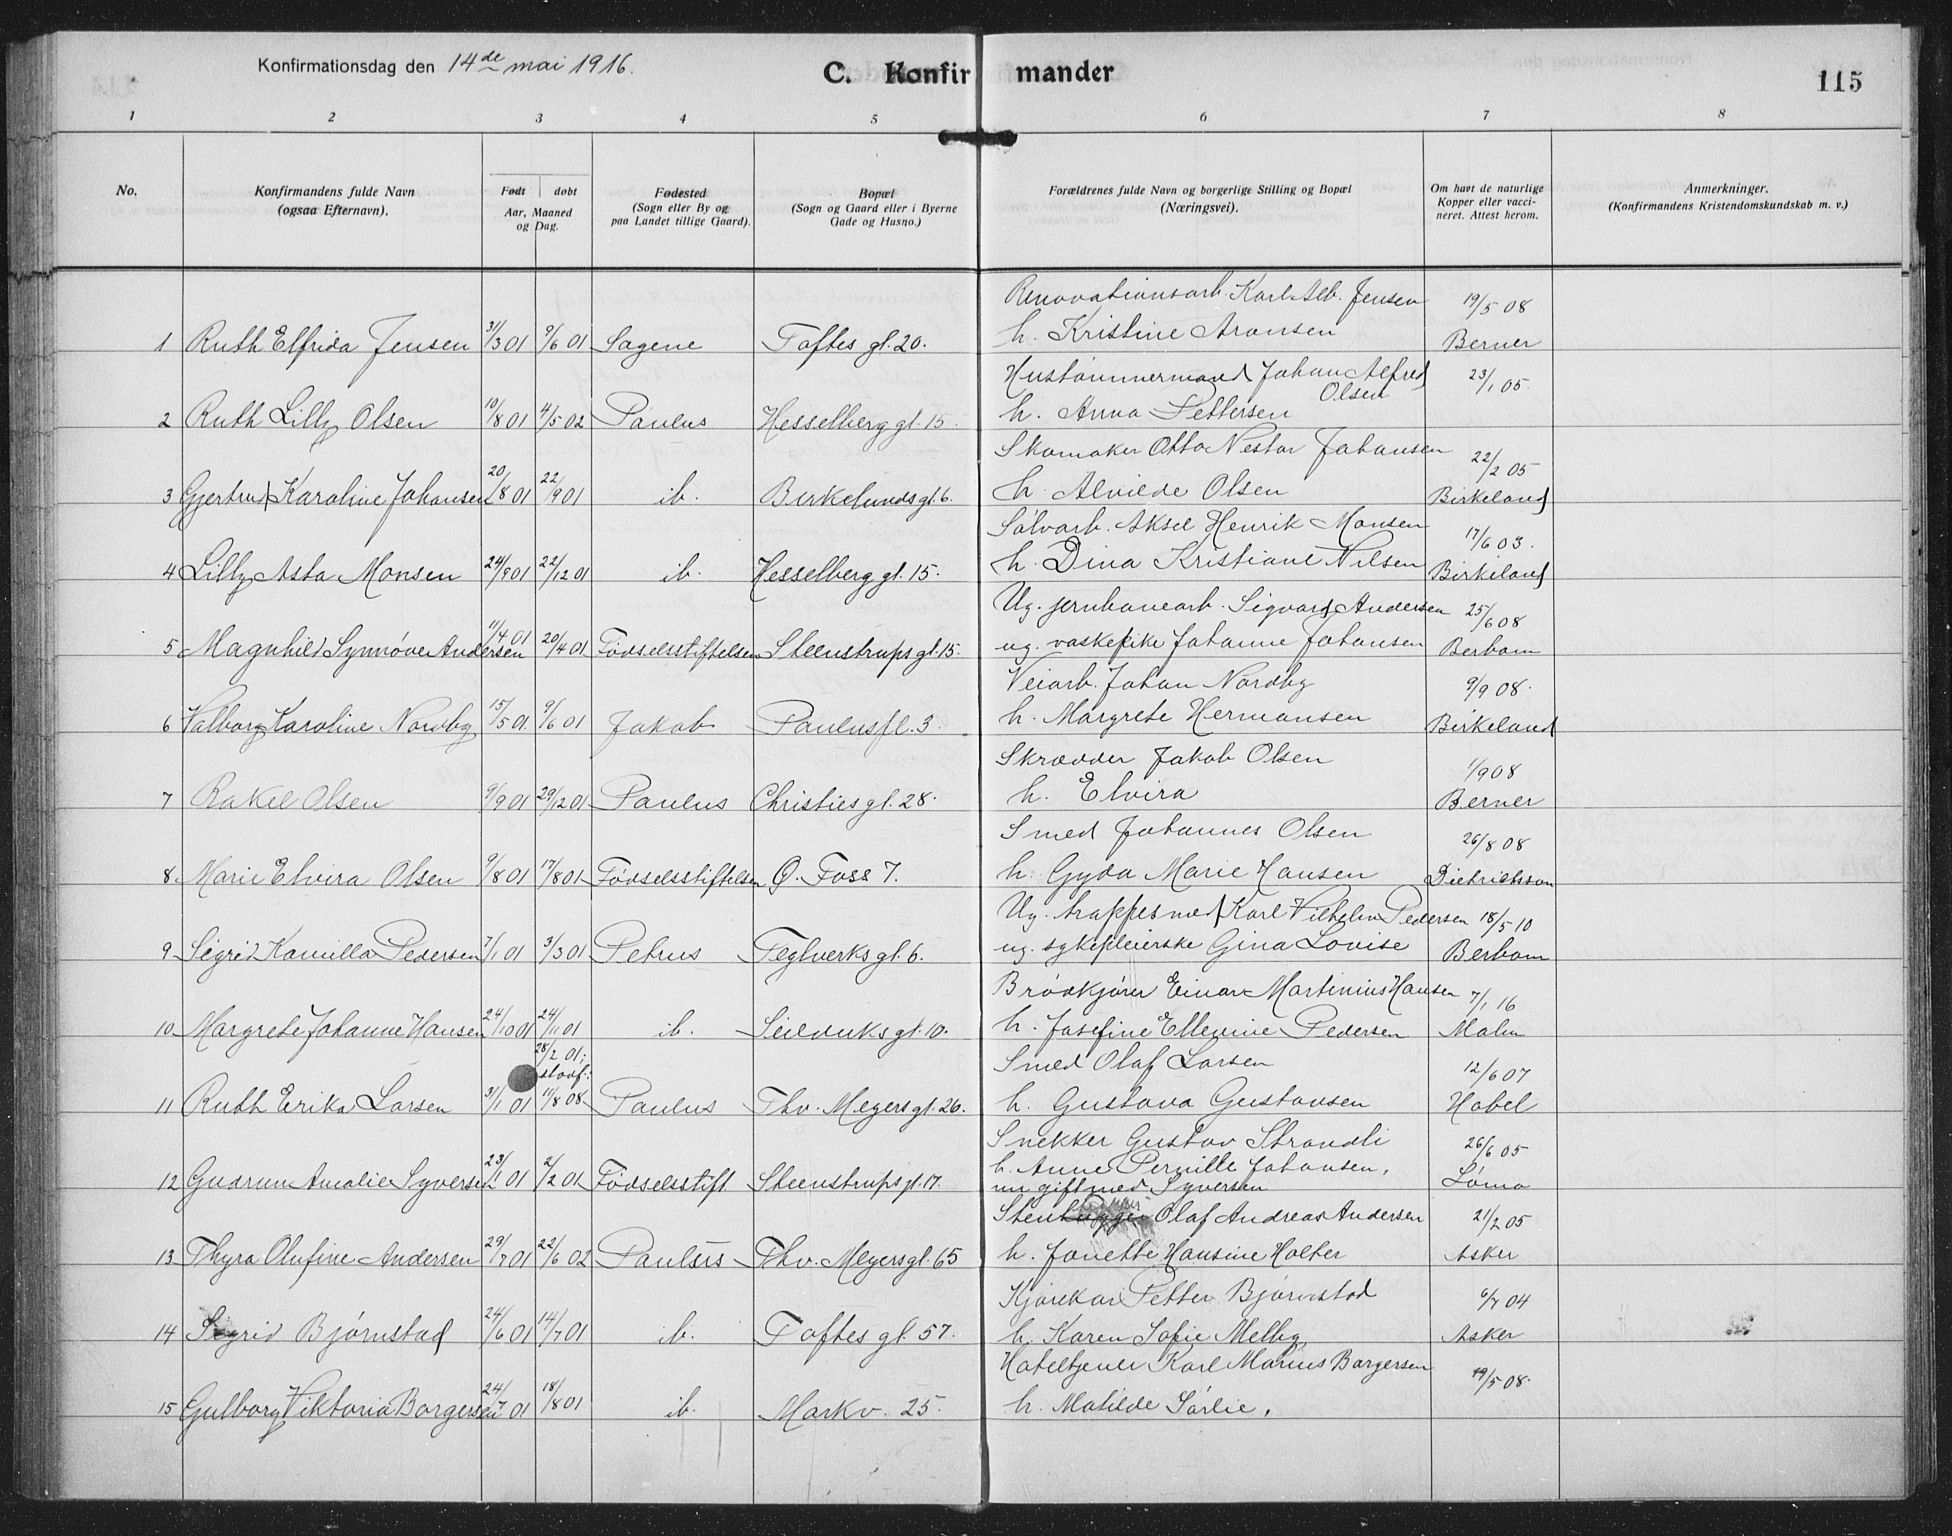 Konfirmationsdag den 14de mai 1916.
C. Konfirmander
115
1 2 3 4 5 6 7 8
No.
Konfirmandens fulde Navn
(ogsaa Efternavn).
Født døbt
Aar, Maaned
og Dag.
Fødested
(Sogn eller By og
paa Landet tillige Gaard).
Bopæl
(Sogn og Gaard eller i Byerne
Gade og Husno.)
Forældrenes fulde Navn og borgerlige Stilling og Bopæl
(Næringsvei).
Om havt de naturlige
Kopper eller vacci-
neret. Attest herom.
Anmerkninger.
(Konfirmandens Kristendomskundskab m. v.)
Renovationsarb. Karl Alb. Jensen 19/5 08
1 Ruth Elfrida Jensen 31/3 01 9/6 01 Sagene Toftes gt. 20. h. Kristine Aronsen Berner
Hustømmermand Johan Alfred 23/1 05.
Olsen
2 Ruth Lilly Olsen 10/8 01 4/5 02 Paulus Hesselberg gt. 15. h. Anna Pettersen
Skomaker Otto Nestor Johansen 22/2 05
3 Gjertrud Karoline Johansen 20/8 01 22/9 01 ib. Birkelunds gt. 6. h. Alvilde Olsen Birkeland
Sølvarb. Aksel Henrik Monsen 17/6 03.
4 Lilly Asta Monsen 24/9 01 22/12 01 ib. Hesselberg gt. 15. h. Dina Kristiane Nilsen Birkeland
Ug. jernbanearb. Sigvard Andersen 25/6 08
5 Magnhild Synnøve Andersen 11/4 01 20/4 01 Fødselsstiftelsen Steenstrups gt. 15. ug. vaskepike Johanne Johansen Berbom
Veiarb. Johan Nordby 9/9 08.
6 Valborg Karoline Nordby 15/5 01. 9/6 01 Jakob Paulus pl. 3. h. Margrete Hermansen Birkeland
Skrædder Jakob Olsen 1/9 08
7 Rakel Olsen 9/9 01 29/12 01 Paulus Christies gt. 28. h. Elvira Berner
Smed Johannes Olsen 26/8 08
8 Marie Elvira Olsen 9/8 01 17/8 01 Fødselsstiftelsen Ø. Foss 7. h. Gyda Marie Hansen Dietrichson
Ug. trappesned Karl Vilhelm Pedersen 18/5 10
9 Sigrid Kamilla Pedersen 7/1 01 3/3 01 Petrus Teglverks gt. 6. ug. sykepleierske Gina Lovise Berbom
Brødkjører Einar Martinius Hansen 7/1 16
10 Margrete Johanne Hansen 24/10 01 24/11 01 ib. Seilduks gt. 10. h. Josefine Ellevine Pedersen Malm
28/2 01; Smed Olaf Larsen 12/6 07
stadf.:
11 Ruth Erika Larsen 31/1 01 11/8 08 Paulus Thv. Meyers gt. 26. h. Gustava Gustavsen Hobel
Snekker Gustav Strandli 26/6 05
h. Anne Pernille Johansen,
12 Gudrun Amalie Syversen 23/1 01 2/2 01 Fødselsstift Steenstrups gt. 17. nu gift med Syversen Lømo
Stenhugger Olaf Andreas Andersen 21/2 05
13 Thyra Olufine Andersen 29/7 01 22/6 02 Paulus Thv. Meyers gt. 65 h. Jonette Hansine Holter Asker
Kjørekar Petter Bjørnstad 6/7 04
14 Sigrid Bjørnstad 24/6 01 14/7 01 ib. Toftes gt. 57. h. Karen Sofie Melby Asker
Hoteltjener Karl Marius Borgersen 19/5 08.
15 Gulborg Viktoria Borgersen 24/7 01 18/8 01 ib. Markv. 25. h. Matilde Sørlie.